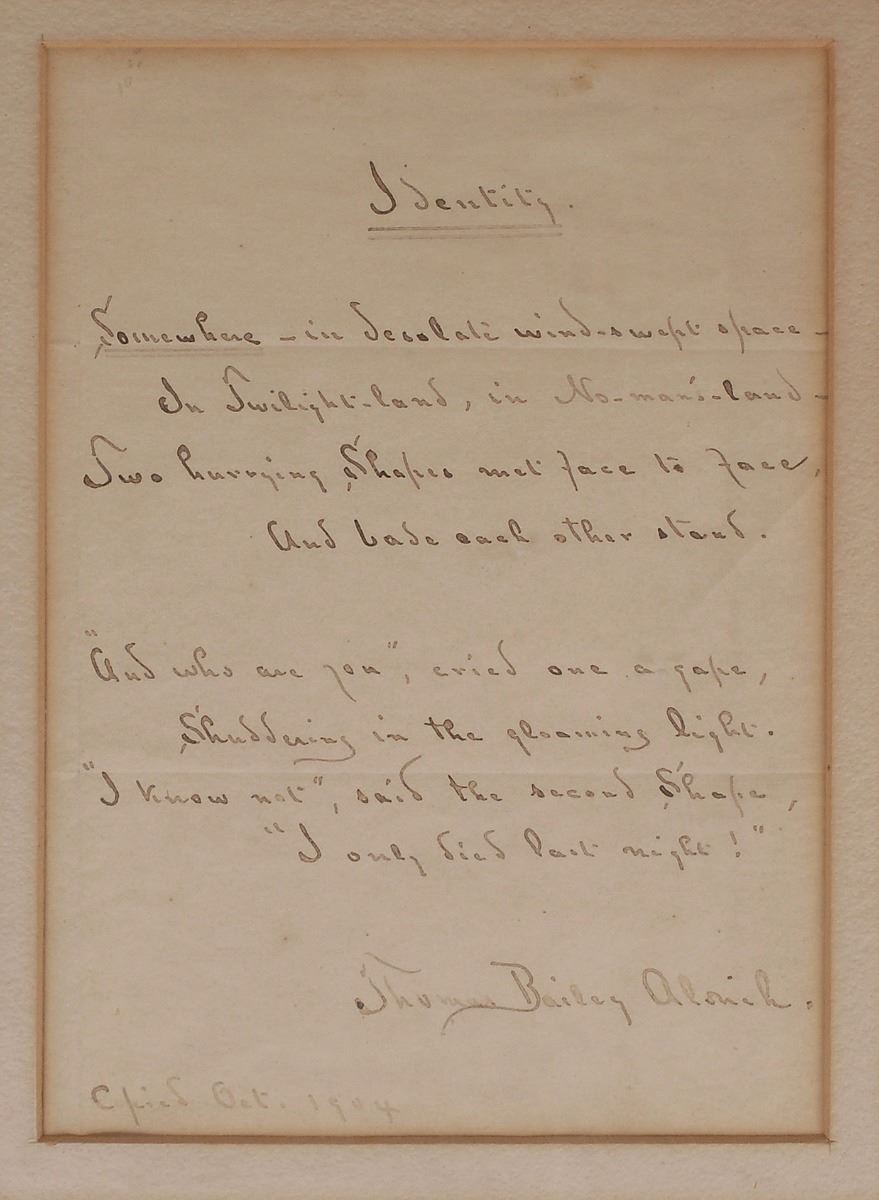 Identity.
Somewhere - in desolate wind-swept space -
In Twilight-land, in No-man's-land -
Two hurrying Shapes met face to face,
And bade each other stand.
"And who are you", cried one a gape,
Shuddering in the gloaming light.
"I know not", said the second Shape,
"I only died last night!"
Thomas Bailey Aldrich.
Cpied Oct. 1904